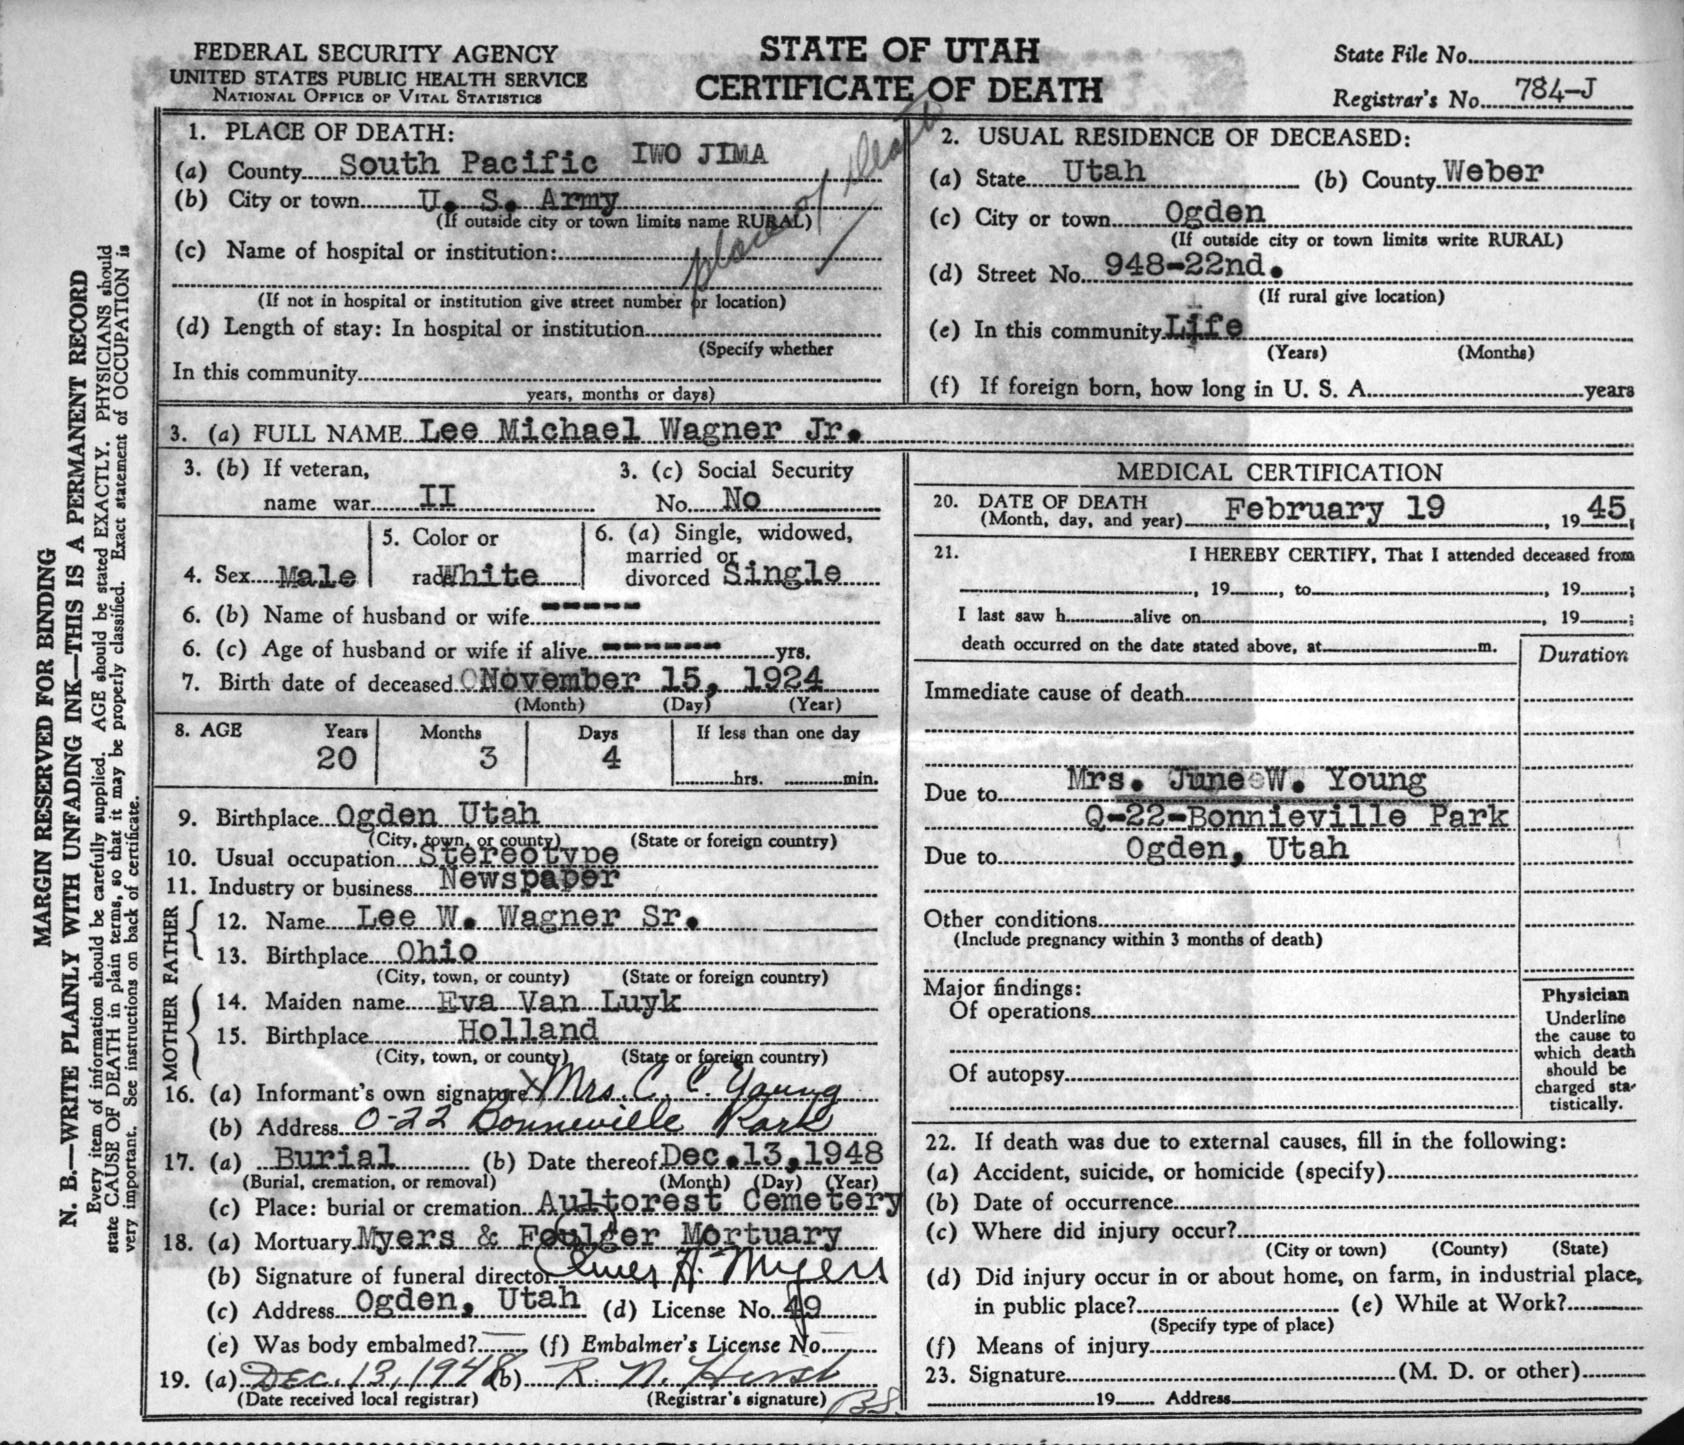 FEDERAL SECURITY AGENCY
UNITED STATES PUBLIC HEALTH SERVICE
NATIONAL OFFICE OF VITAL STATISTICS
STATE OF UTAH
CERTIFICATE OF DEATH
State File No.
Registrar's No. 784-J
MARGIN RESERVED FOR BINDING
N. B.—WRITE PLAINLY WITH UNFADING INK—THIS IS A PERMANENT RECORD
Every item of information should be carefully supplied. AGE should be stated EXACTLY. PHYSICIANS should
state CAUSE OF DEATH in plain terms, so that it may be properly classified. Exact statement of OCCUPATION is
very important. See instructions on back of certificate.
1. PLACE OF DEATH:
(a) County South Pacific IWO JIMA
(b) City or town U. S. Army
(If outside city or town limits name RURAL)
place of death
(c) Name of hospital or institution:
(If not in hospital or institution give street number or location)
(d) Length of stay: In hospital or institution
(Specify whether
In this community
years, months or days)
2. USUAL RESIDENCE OF DECEASED:
(a) State Utah (b) County Weber
(c) City or town Ogden
(If outside city or town limits write RURAL)
(d) Street No. 948-22nd.
(If rural give location)
(e) In this community Life
(Years) (Months)
(f) If foreign born, how long in U. S. A. years
3. (a) FULL NAME Lee Michael Wagner Jr.
3. (b) If veteran,
name war II
3. (c) Social Security
No. No
4. Sex Male
5. Color or
race White
6. (a) Single, widowed,
married or
divorced Single
6. (b) Name of husband or wife ------
6. (c) Age of husband or wife if alive ------- yrs.
7. Birth date of deceased November 15, 1924
(Month) (Day) (Year)
8. AGE Years Months Days If less than one day
20 3 4 hrs. min.
9. Birthplace Ogden Utah
(City, town, or county) (State or foreign country)
10. Usual occupation Stereotype
11. Industry or business Newspaper
FATHER
12. Name Lee W. Wagner Sr.
13. Birthplace Ohio
(City, town, or county) (State or foreign country)
MOTHER
14. Maiden name Eva Van Luyk
15. Birthplace Holland
(City, town, or county) (State or foreign country)
16. (a) Informant's own signature X Mrs. C. C. Young
(b) Address O-22 Bonneville Park
17. (a) Burial (b) Date thereof Dec. 13, 1948
(Burial, cremation, or removal) (Month) (Day) (Year)
(c) Place: burial or cremation Aultorest Cemetery
18. (a) Mortuary Myers & Foulger Mortuary
(b) Signature of funeral director H. Myers
(c) Address Ogden, Utah (d) License No. 49
(e) Was body embalmed? (f) Embalmer's License No.
19. (a) Dec. 13, 1948 (b) R. N. Hirst
(Date received local registrar) (Registrar's signature)
MEDICAL CERTIFICATION
20. DATE OF DEATH
(Month, day, and year) February 19, 1945,
21. I HEREBY CERTIFY, That I attended deceased from
, 19 , to , 19 ;
I last saw h alive on , 19 ;
death occurred on the date stated above, at m.
Duration
Immediate cause of death
Due to Mrs. June W. Young
Q-22-Bonnieville Park
Due to Ogden, Utah
Other conditions
(Include pregnancy within 3 months of death)
Major findings:
Of operations
Of autopsy
Physician
Underline
the cause to
which death
should be
charged sta-
tistically.
22. If death was due to external causes, fill in the following:
(a) Accident, suicide, or homicide (specify)
(b) Date of occurrence
(c) Where did injury occur?
(City or town) (County) (State)
(d) Did injury occur in or about home, on farm, in industrial place,
in public place? (e) While at Work?
(Specify type of place)
(f) Means of injury
23. Signature (M. D. or other)
19 Address